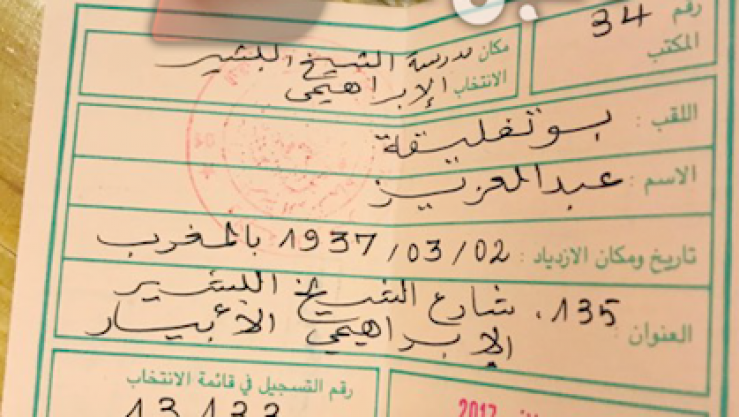 رقم
المكتب
34
مكان
الانتخاب
مدرسة الشيخ البشير
الإبراهيمي
اللقب : بوتفليقة
الاسم : عبد العزيز
تاريخ ومكان الازدياد : 1937/03/02 بالمغرب
العنوان : 135، شارع الشيخ البشير
الإبراهيمي الأبيار
رقم التسجيل في قائمة الانتخاب
13133
2017